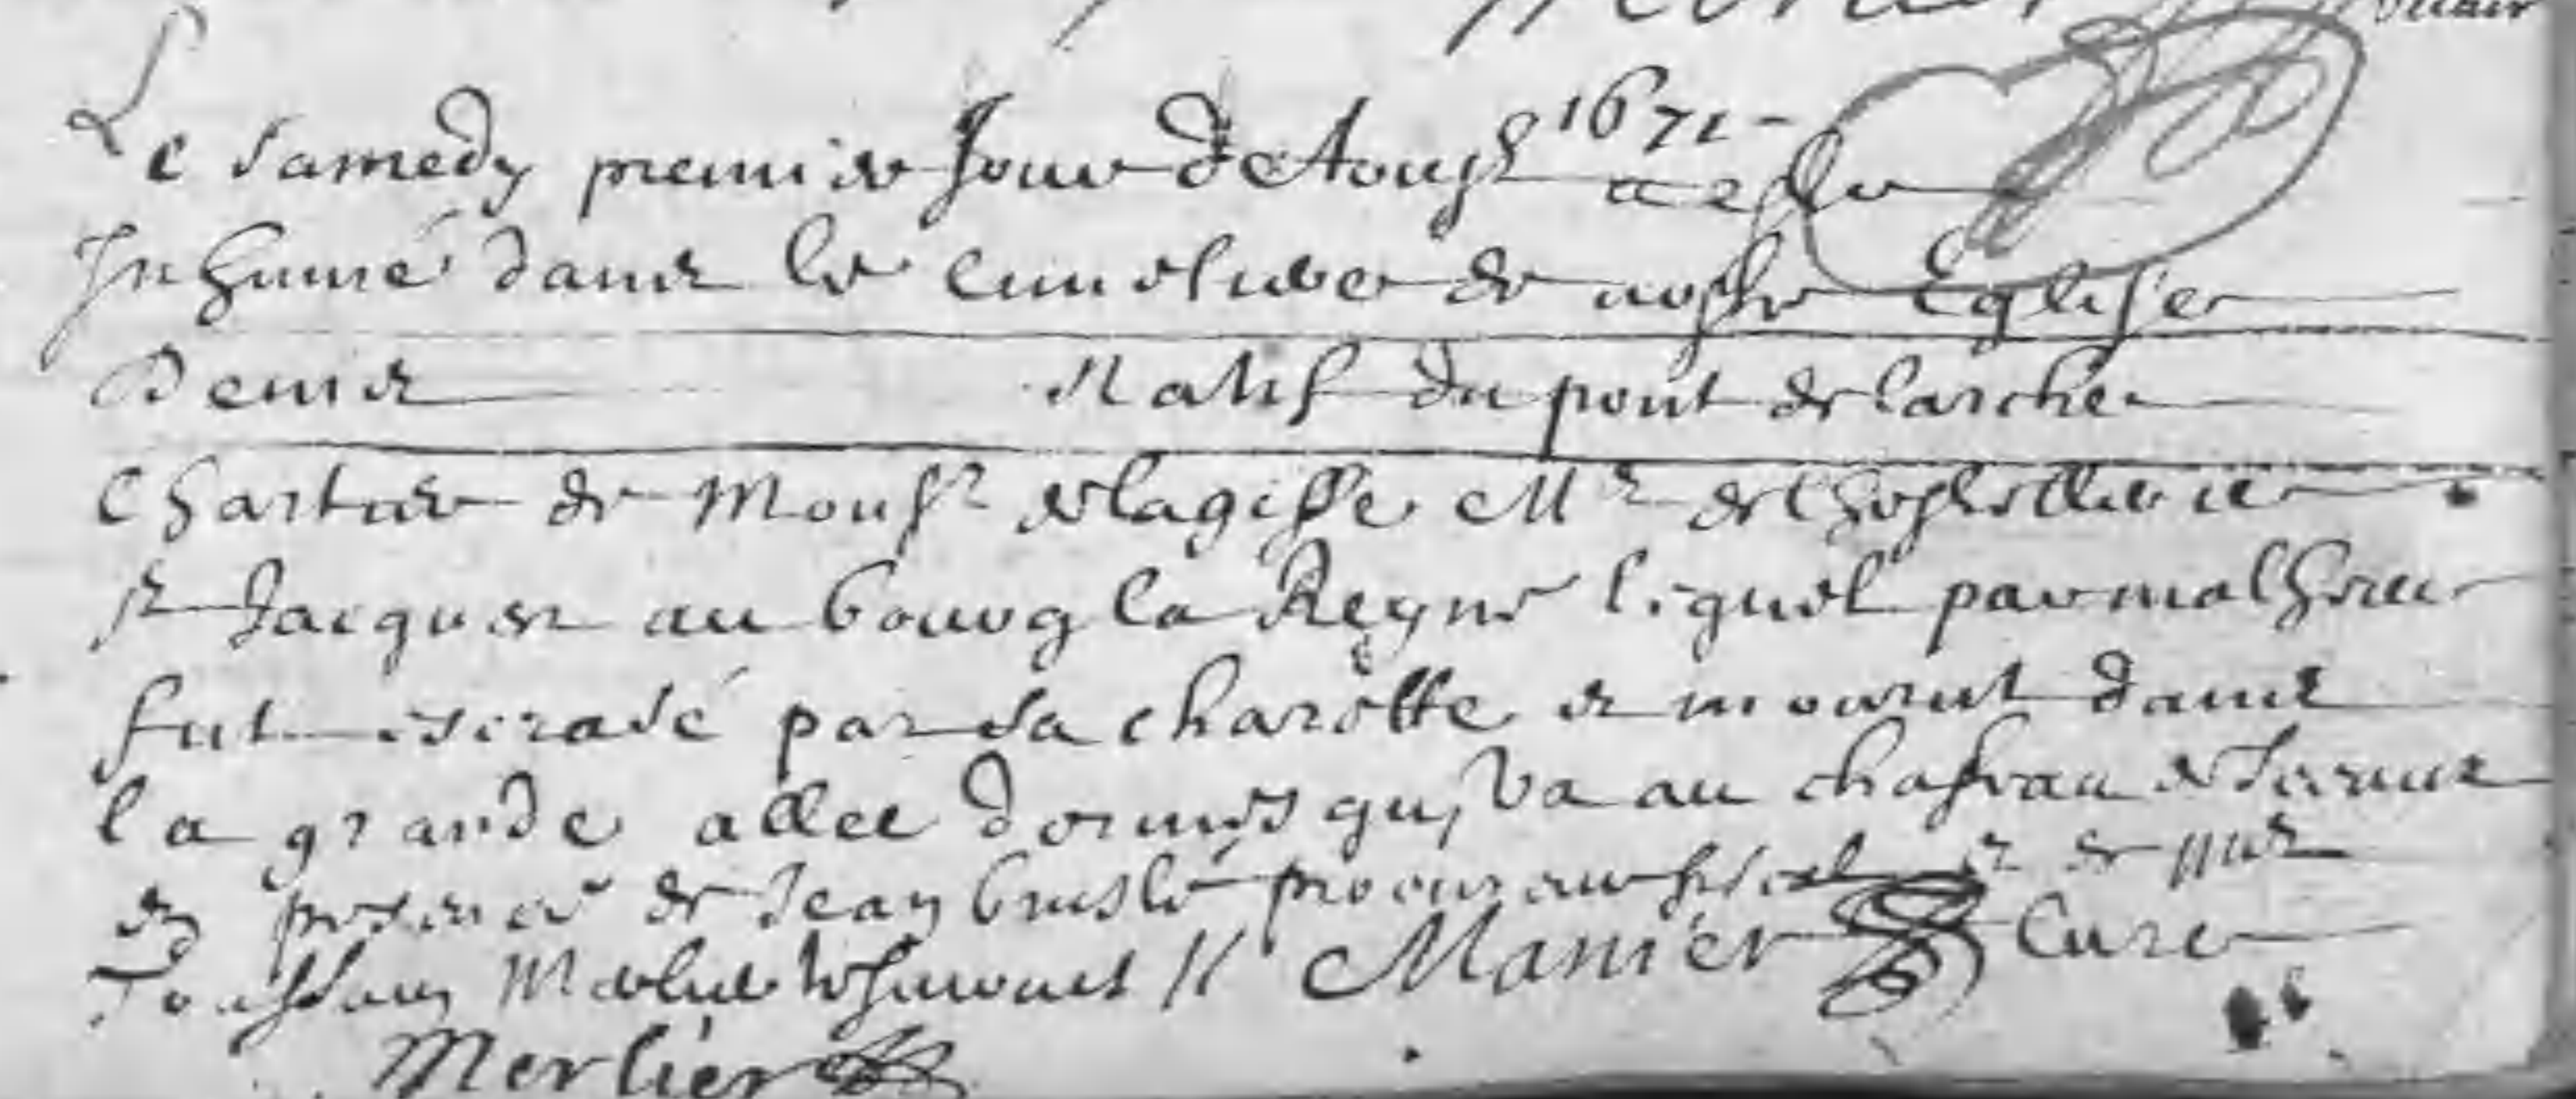 Le samedy premier Jour d'Aoust 1671 a esté
Inhumé dans le cimetiere de nostre Eglise
Denis natif du pont de larche
Chartier de Monsr Mr de lhostellerie
St Jacques au bourg la Reyne lequel par malheur
fut escrasé par sa charette et mourut dans
la grande allee dormes qui va au chasteau de Sceaux
en presence de Jean procureur fiscal et de
Toussain Merlier // Manier Curé
Merlier